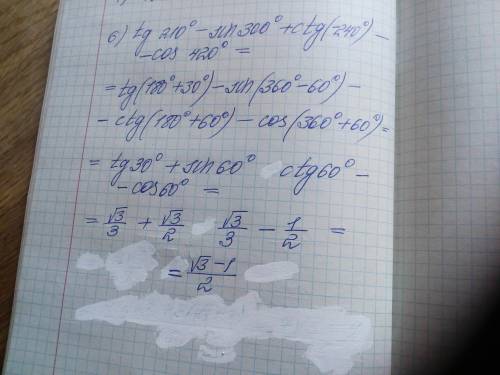 б) tg 210° - sin 300° + ctg(-240°) -
- cos 420° =
= tg(180° + 30°) - sin(360° - 60°) -
- ctg(180° + 60°) - cos(360° + 60°) =
= tg 30° + sin 60° ctg 60° -
- cos 60° =
= √3/3 + √3/2 √3/3 - 1/2 =
= √3 - 1/2